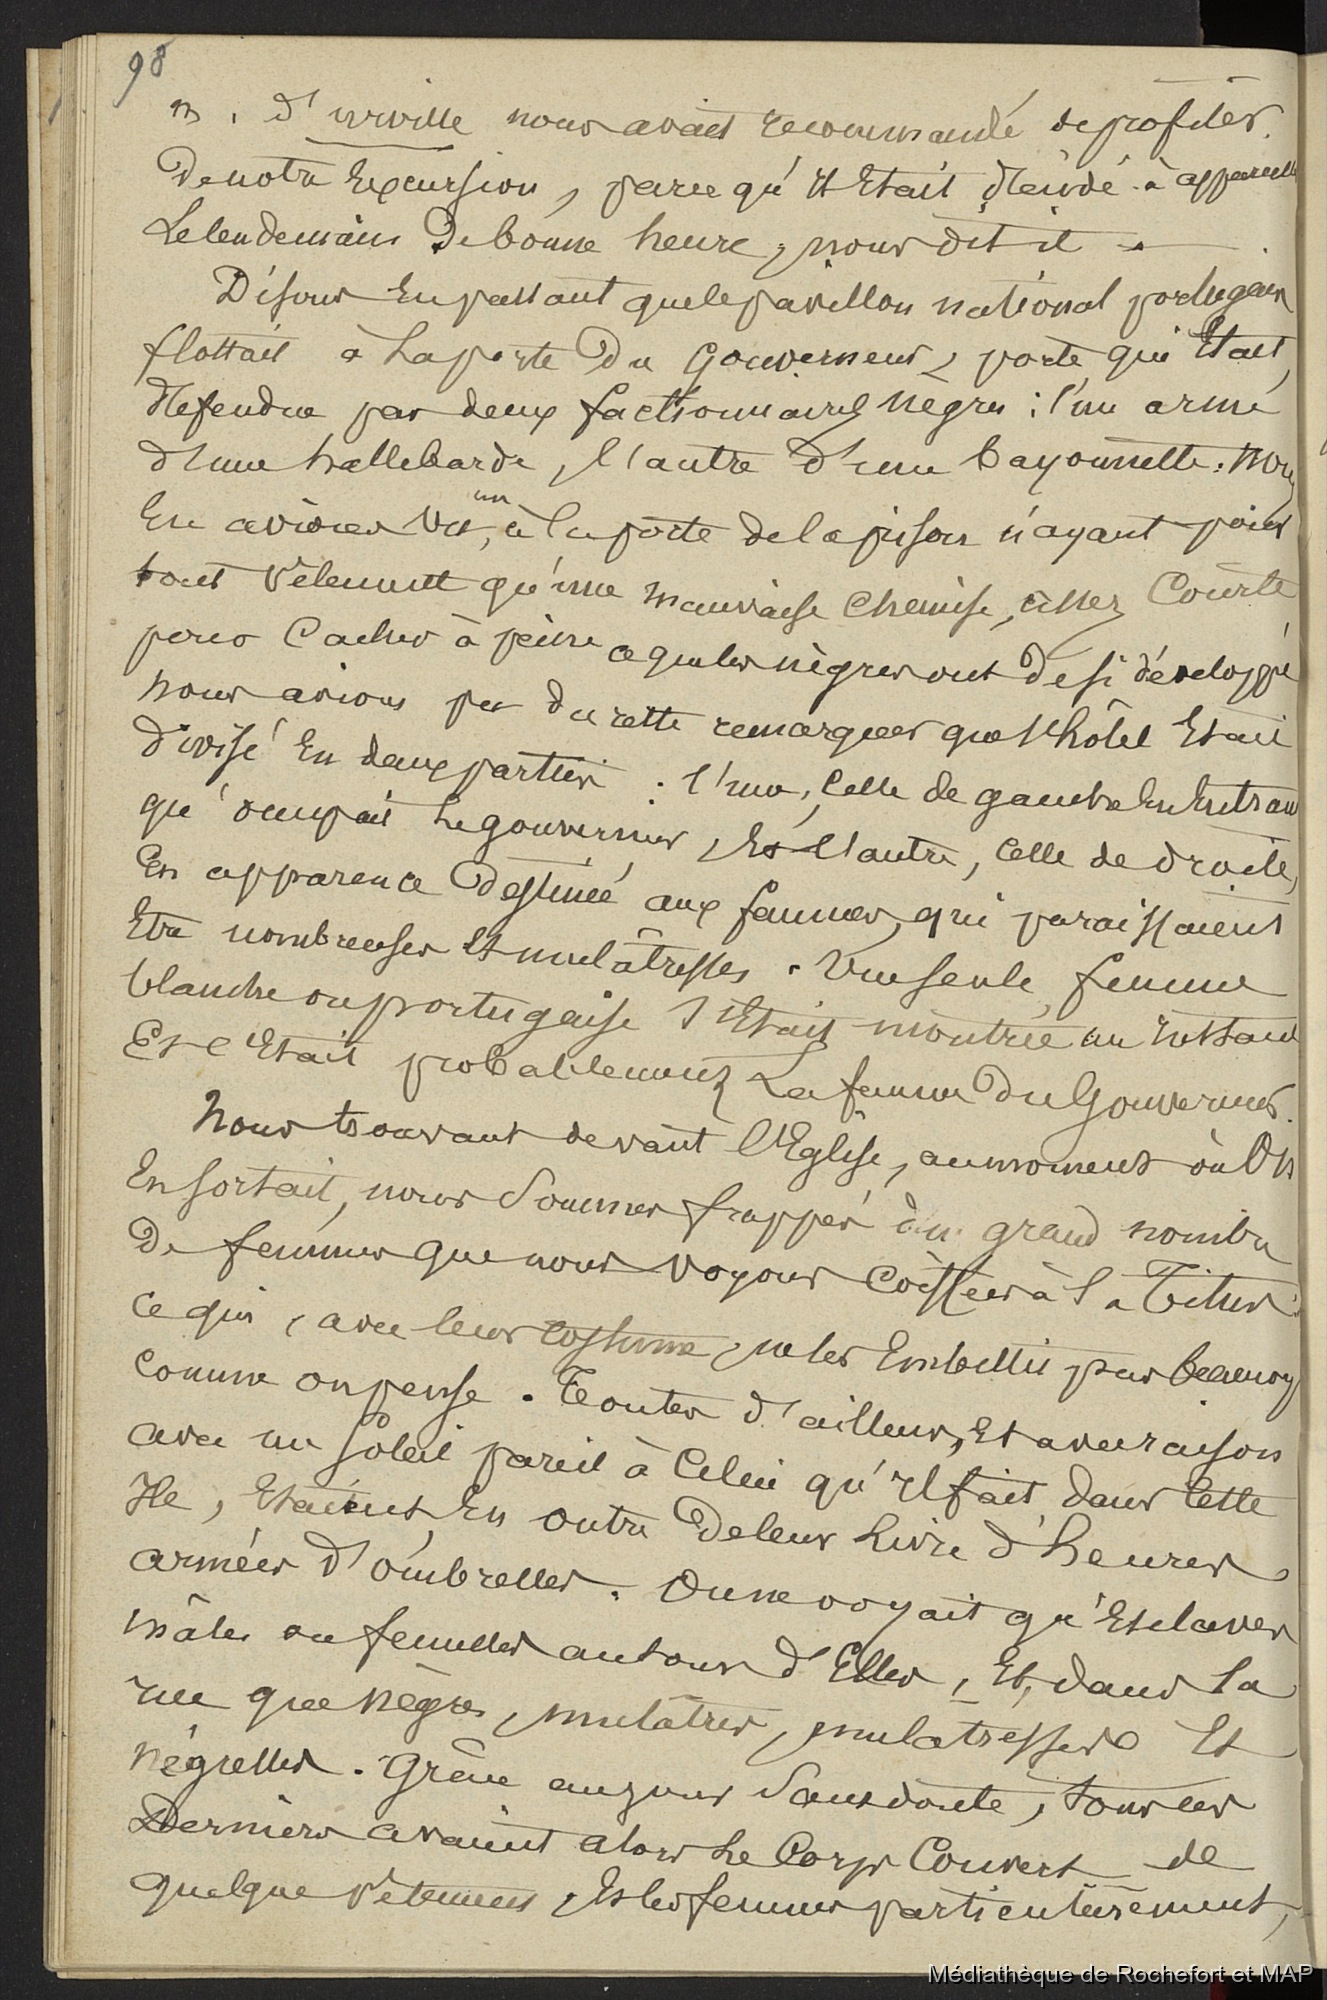 98
M. d'urville nous avait recommandé de profiter
De notre Excursion, parce qu'il Etait décidé à appareiller
Le lendemain De bonne heure, nous dit il .
Disons En passant que le pavillon national portugais
flottait à La porte Du Gouverneur, porte qui Etait
défendue par deux factionnaires nègres : l'un armé
d'une hallebarde, l'autre d'une bayonnette. Nous
En avions vu un, à la porte de la prison n'ayant pour
tout vêtement qu'une mauvaise chemise, assez Courte
pour Cacher à peine ce que les nègres ont De si développé
Nous avions pu du reste remarquer que l'hôtel Etait
divisé En deux parties : l'une, Celle de gauche En Entrant
qu'occupait Le gouverneur, Et l'autre, Celle de droite,
En apparence Destinée aux femmes, qui paraissaient
Etre nombreuses Et mulâtresses. Une seule femme
blanche ou portugaise s'Etait montrée un instant
Et c'Etait probablement La femme Du Gouverneur.
Nous trouvant devant l'Eglise, au moment où On
En sortait, nous Sommes frappés du grand nombre
De femmes que nous voyons Coiffées à la Titus :
Ce qui, avec leur costume, ne les Embellit pas beaucoup
Comme on pense. Toutes d'ailleurs, Et avec raison
avec un Soleil pareil à Celui qu'il fait dans Cette
Ile, Etaient En outre De leur Livre d'heures
armées d'ombrelles. On ne voyait qu'Esclaves
mâles ou femelles autour d'Elles, Et, dans la
rue que nègres, mulâtres, mulatresses Et
négresses. Grâce au jour Sans doute, tous ces
Derniers avaient alors Le Corps Couvert de
quelque vêtement, Et les femmes particulièrement,
Médiathèque de Rochefort et MAP